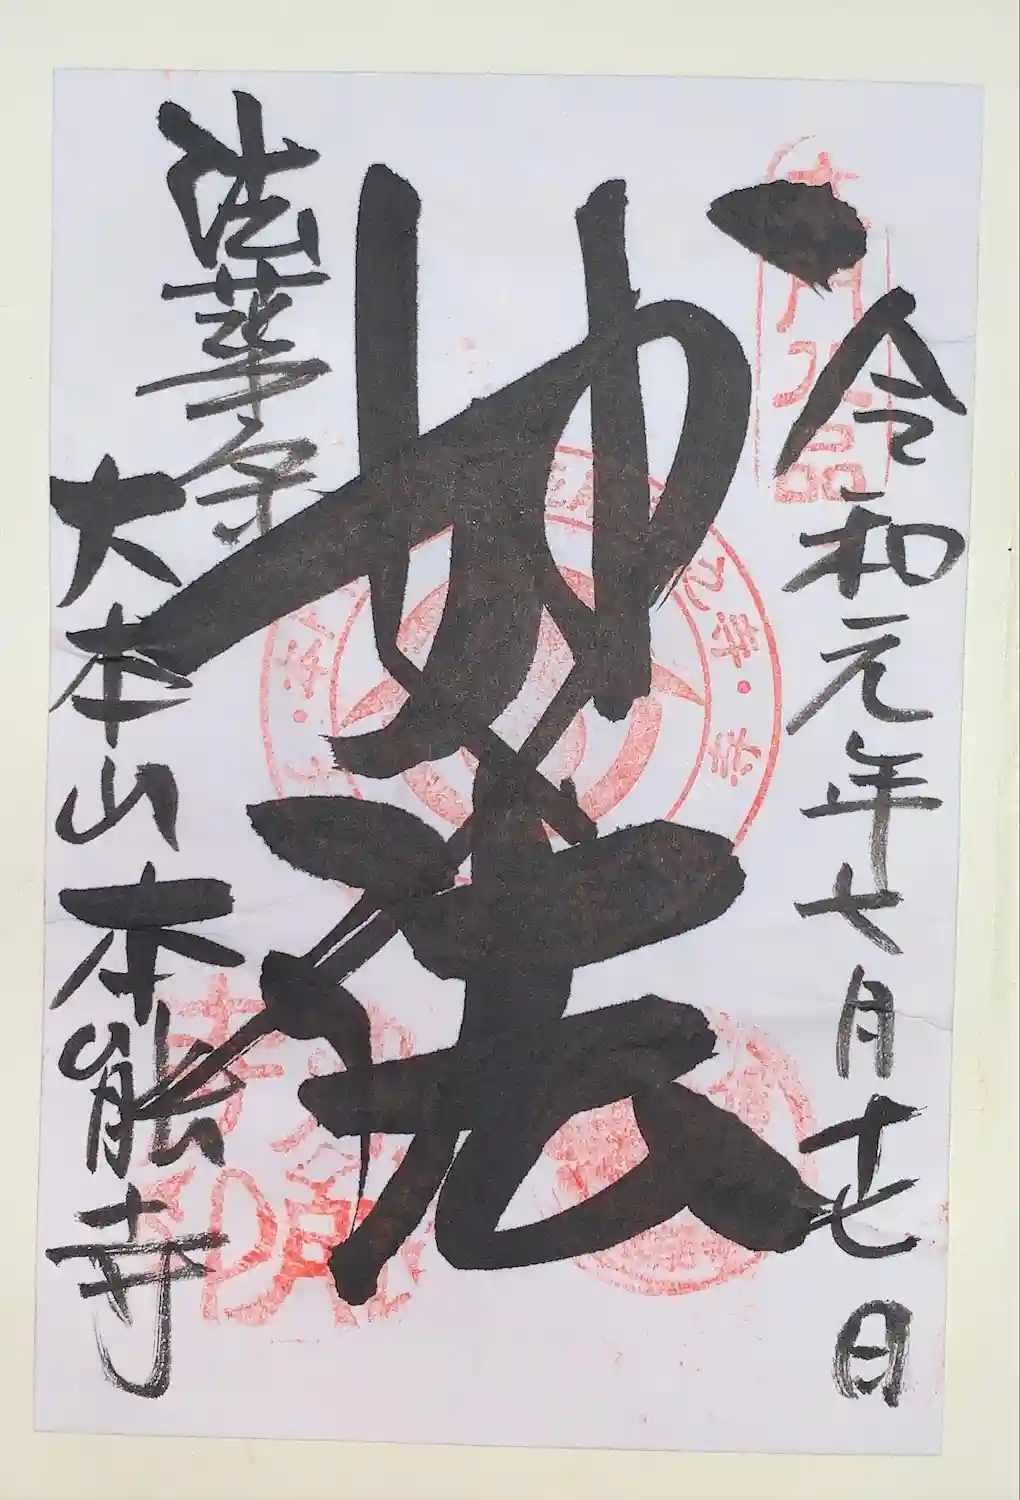 本門八品
令和元年七月十七日
妙法
法華宗
大本山本能寺